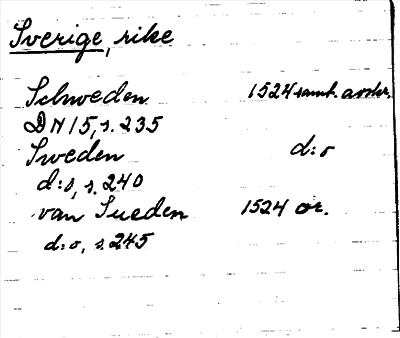 Sverige, rike
Schweden 1524 samt. avskr.
DN 15, s. 235
Sweden d:o
d:o, s. 240
van Sueden 1524 or.
d:o, s. 245